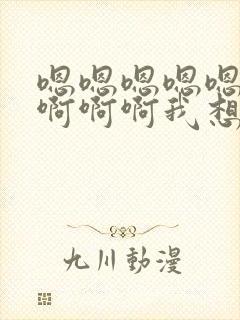 嗯嗯嗯嗯嗯
啊啊啊我想
九川動漫